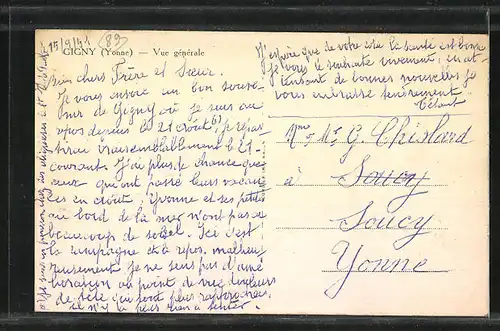 15/9/41 (89)
GIGNY (Yonne) — Vue générale
Bien chers Frère et Sœur.
Je vous envoie un bon souve-
nir de Gigny où je suis au
repos depuis le 21 août, je repar-
tirai vraisemblablement le 21
courant. J'ai plus de chance que
ceux qui ont passé leurs vacan-
ces en Août, Yvonne et ses petites
au bord de la mer n'ont pas eu
beaucoup de soleil. Ici c'est
la campagne et le repos, malheu-
reusement je ne sens pas d'amé-
lioration au point de vue douleurs
de tête qui sont plus rapprochées,
il n'y a plus rien à tenter.
J'espère que de votre côté la santé est bonne
je vous le souhaite vivement, en at-
tendant de bonnes nouvelles je
vous embrasse tendrement
Mme & Mr G. Ghislard
à Soucy
Soucy
Yonne